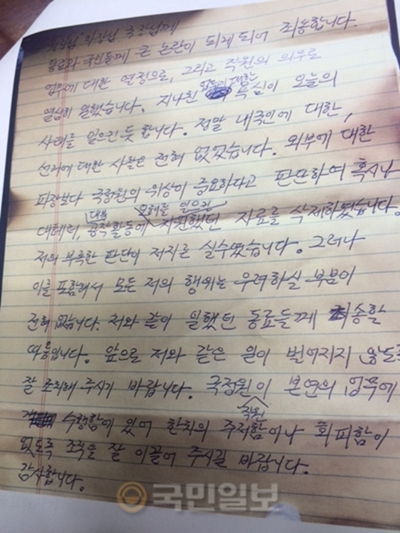 원장님, 차장님, 국장님께
동료와 국민들께 큰 논란이 되게 되어 죄송합니다.
업무에 대한 열정으로, 그리고 직원의 의무로
열심히 일했습니다. 지나친 업무에 대한 욕심이 오늘의
사태를 일으킨 듯 합니다. 정말 내국인에 대한,
선거에 대한 사찰은 전혀 없었습니다. 외부에 대한
파장보다 국정원의 위상이 중요하다고 판단하여 혹시나
대테러, 대북 공작활동에 오해를 일으킨 지원했던 자료를 삭제하였습니다.
저의 부족한 판단이 저지른 실수였습니다. 그러나
이를 포함해서 모든 저의 행위는 우려하실 부분이
전혀 없습니다. 저와 같이 일했던 동료들께 죄송할
따름입니다. 앞으로 저와 같은 일이 벌어지지 않도록
잘 조치해 주시기 바랍니다. 국정원이 본연의 업무에
수행함에 있어 한치의 주저함이나 직원의 회피함이
없도록 조직을 잘 이끌어 주시길 바랍니다.
감사합니다.
국민일보